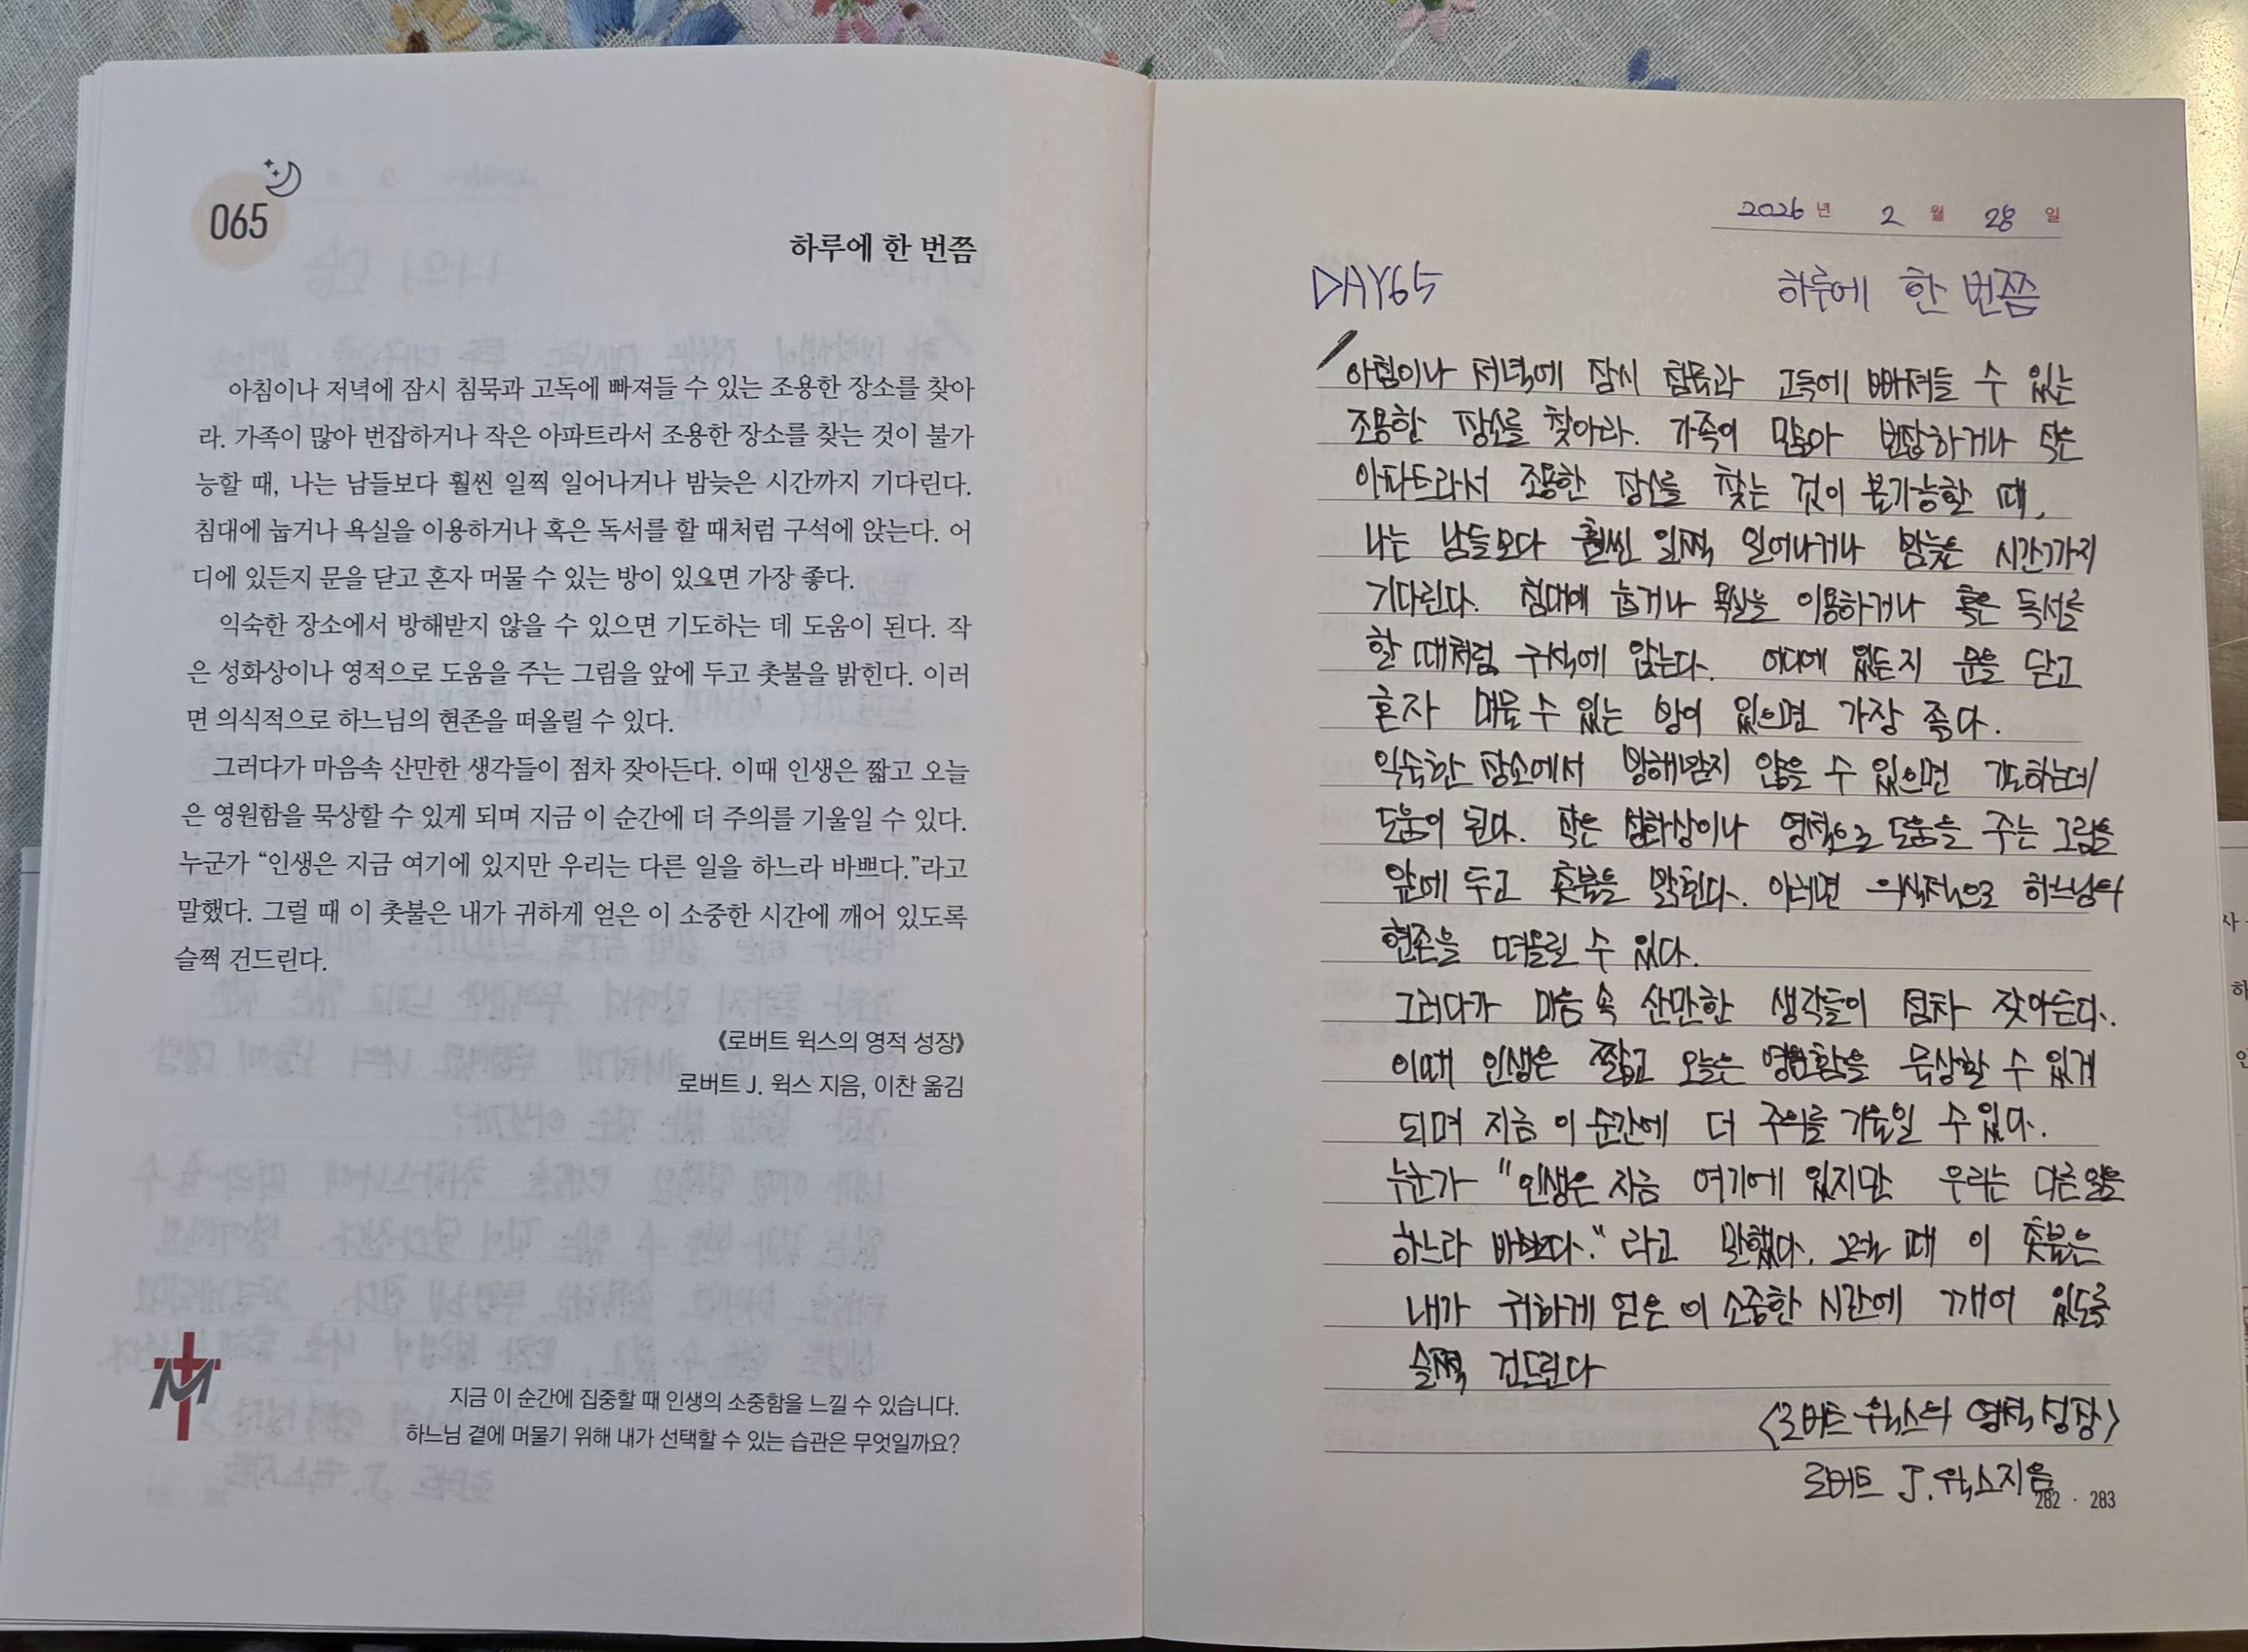 065
하루에 한 번쯤
아침이나 저녁에 잠시 침묵과 고독에 빠져들 수 있는 조용한 장소를 찾아
라. 가족이 많아 번잡하거나 작은 아파트라서 조용한 장소를 찾는 것이 불가
능할 때, 나는 남들보다 훨씬 일찍 일어나거나 밤늦은 시간까지 기다린다.
침대에 눕거나 욕실을 이용하거나 혹은 독서를 할 때처럼 구석에 앉는다. 어
디에 있든지 문을 닫고 혼자 머물 수 있는 방이 있으면 가장 좋다.
익숙한 장소에서 방해받지 않을 수 있으면 기도하는 데 도움이 된다. 작
은 성화상이나 영적으로 도움을 주는 그림을 앞에 두고 촛불을 밝힌다. 이러
면 의식적으로 하느님의 현존을 떠올릴 수 있다.
그러다가 마음속 산만한 생각들이 점차 잦아든다. 이때 인생은 짧고 오늘
은 영원함을 묵상할 수 있게 되며 지금 이 순간에 더 주의를 기울일 수 있다.
누군가 “인생은 지금 여기에 있지만 우리는 다른 일을 하느라 바쁘다.”라고
말했다. 그럴 때 이 촛불은 내가 귀하게 얻은 이 소중한 시간에 깨어 있도록
슬쩍 건드린다.
《로버트 윅스의 영적 성장》
로버트 J. 윅스 지음, 이찬 옮김
지금 이 순간에 집중할 때 인생의 소중함을 느낄 수 있습니다.
하느님 곁에 머물기 위해 내가 선택할 수 있는 습관은 무엇일까요?
2026 년 2 월 28 일
DAY65 하루에 한 번쯤
아침이나 저녁에 잠시 침묵과 고독에 빠져들 수 있는
조용한 장소를 찾아라. 가족이 많아 번잡하거나 작은
아파트라서 조용한 장소를 찾는 것이 불가능할 때,
나는 남들보다 훨씬 일찍 일어나거나 밤늦은 시간까지
기다린다. 침대에 눕거나 욕실을 이용하거나 혹은 독서를
할 때처럼 구석에 앉는다. 어디에 있든지 문을 닫고
혼자 머물 수 있는 방이 있으면 가장 좋다.
익숙한 장소에서 방해받지 않을 수 있으면 기도하는데
도움이 된다. 작은 성화상이나 영적으로 도움을 주는 그림을
앞에 두고 촛불을 밝힌다. 이러면 의식적으로 하느님의
현존을 떠올릴 수 있다.
그러다가 마음 속 산만한 생각들이 점차 잦아든다.
이때 인생은 짧고 오늘은 영원함을 묵상할 수 있게
되며 지금 이 순간에 더 주의를 기울일 수 있다.
누군가 "인생은 지금 여기에 있지만 우리는 다른 일을
하느라 바쁘다." 라고 말했다. 그럴 때 이 촛불은
내가 귀하게 얻은 이 소중한 시간에 깨어 있도록
슬쩍 건드린다
<로버트 윅스의 영적 성장>
로버트 J. 윅스 지음
282 · 283